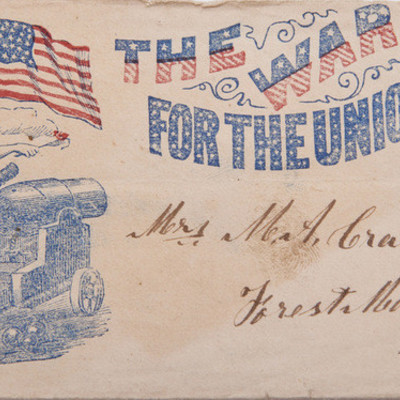 THE WAR
FOR THE UNIO
Mrs M. A. Cra
Forest